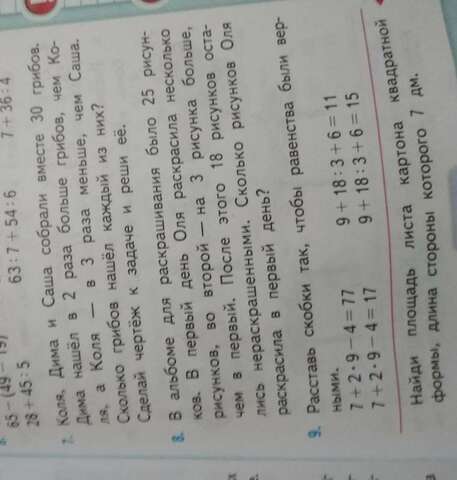 65 − (49 − 19)
63 : 7 + 54 : 6
7 + 36 : 4
28 + 45 : 5
7. Коля, Дима и Саша собрали вместе 30 грибов.
Дима нашёл в 2 раза больше грибов, чем Ко-
ля, а Коля — в 3 раза меньше, чем Саша.
Сколько грибов нашёл каждый из них?
Сделай чертёж к задаче и реши её.
8. В альбоме для раскрашивания было 25 рисун-
ков. В первый день Оля раскрасила несколько
рисунков, во второй — на 3 рисунка больше,
чем в первый. После этого 18 рисунков оста-
лись нераскрашенными. Сколько рисунков Оля
раскрасила в первый день?
9. Расставь скобки так, чтобы равенства были вер-
ными.
7 + 2 · 9 − 4 = 77 9 + 18 : 3 + 6 = 11
7 + 2 · 9 − 4 = 17 9 + 18 : 3 + 6 = 15
Найди площадь листа картона квадратной
формы, длина стороны которого 7 дм.